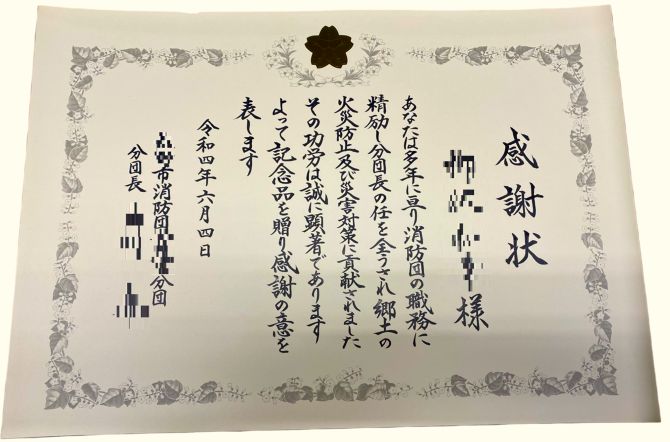 感謝状
様
あなたは多年に亘り消防団の職務に
精励し分団長の任を全うされ郷土の
火災防止及び災害対策に貢献されました
その功労は誠に顕著であります
よって記念品を贈り感謝の意を
表します
令和四年六月四日
市消防団 分団
分団長